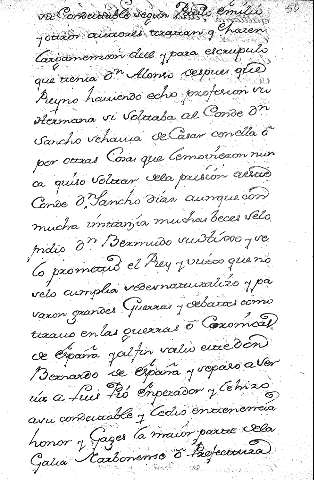 su Condestable segun Paulo Emilio
y otros autores tratan q hacen
largamencion del y para escrupulo
que tenia Dn Alonso despues que
Reyno haviendo echo profesion su
Hermana si soltaba al Conde Dn
Sancho se havia de Casar con ella o
por otras Cosas que le movieron nun
ca quiso soltar de la prision a este
Conde Dn Sancho dias aunque con
mucha instanzia muchas beces se lo
pidio Dn Bermudo su
lo prometio el Rey y visto que no
se lo cumplia se desnaturalizo y pa
saron grandes Guerras y debates como
en las guerras o Coronicas
de España y al fin salio este Don
Bernardo de España y se paso a ser
vir a Luis Pio Enperador y le hizo
a su condestable y le dio en tenencia
honor y Gages la maior parte de la
Galia Narbonense o
50